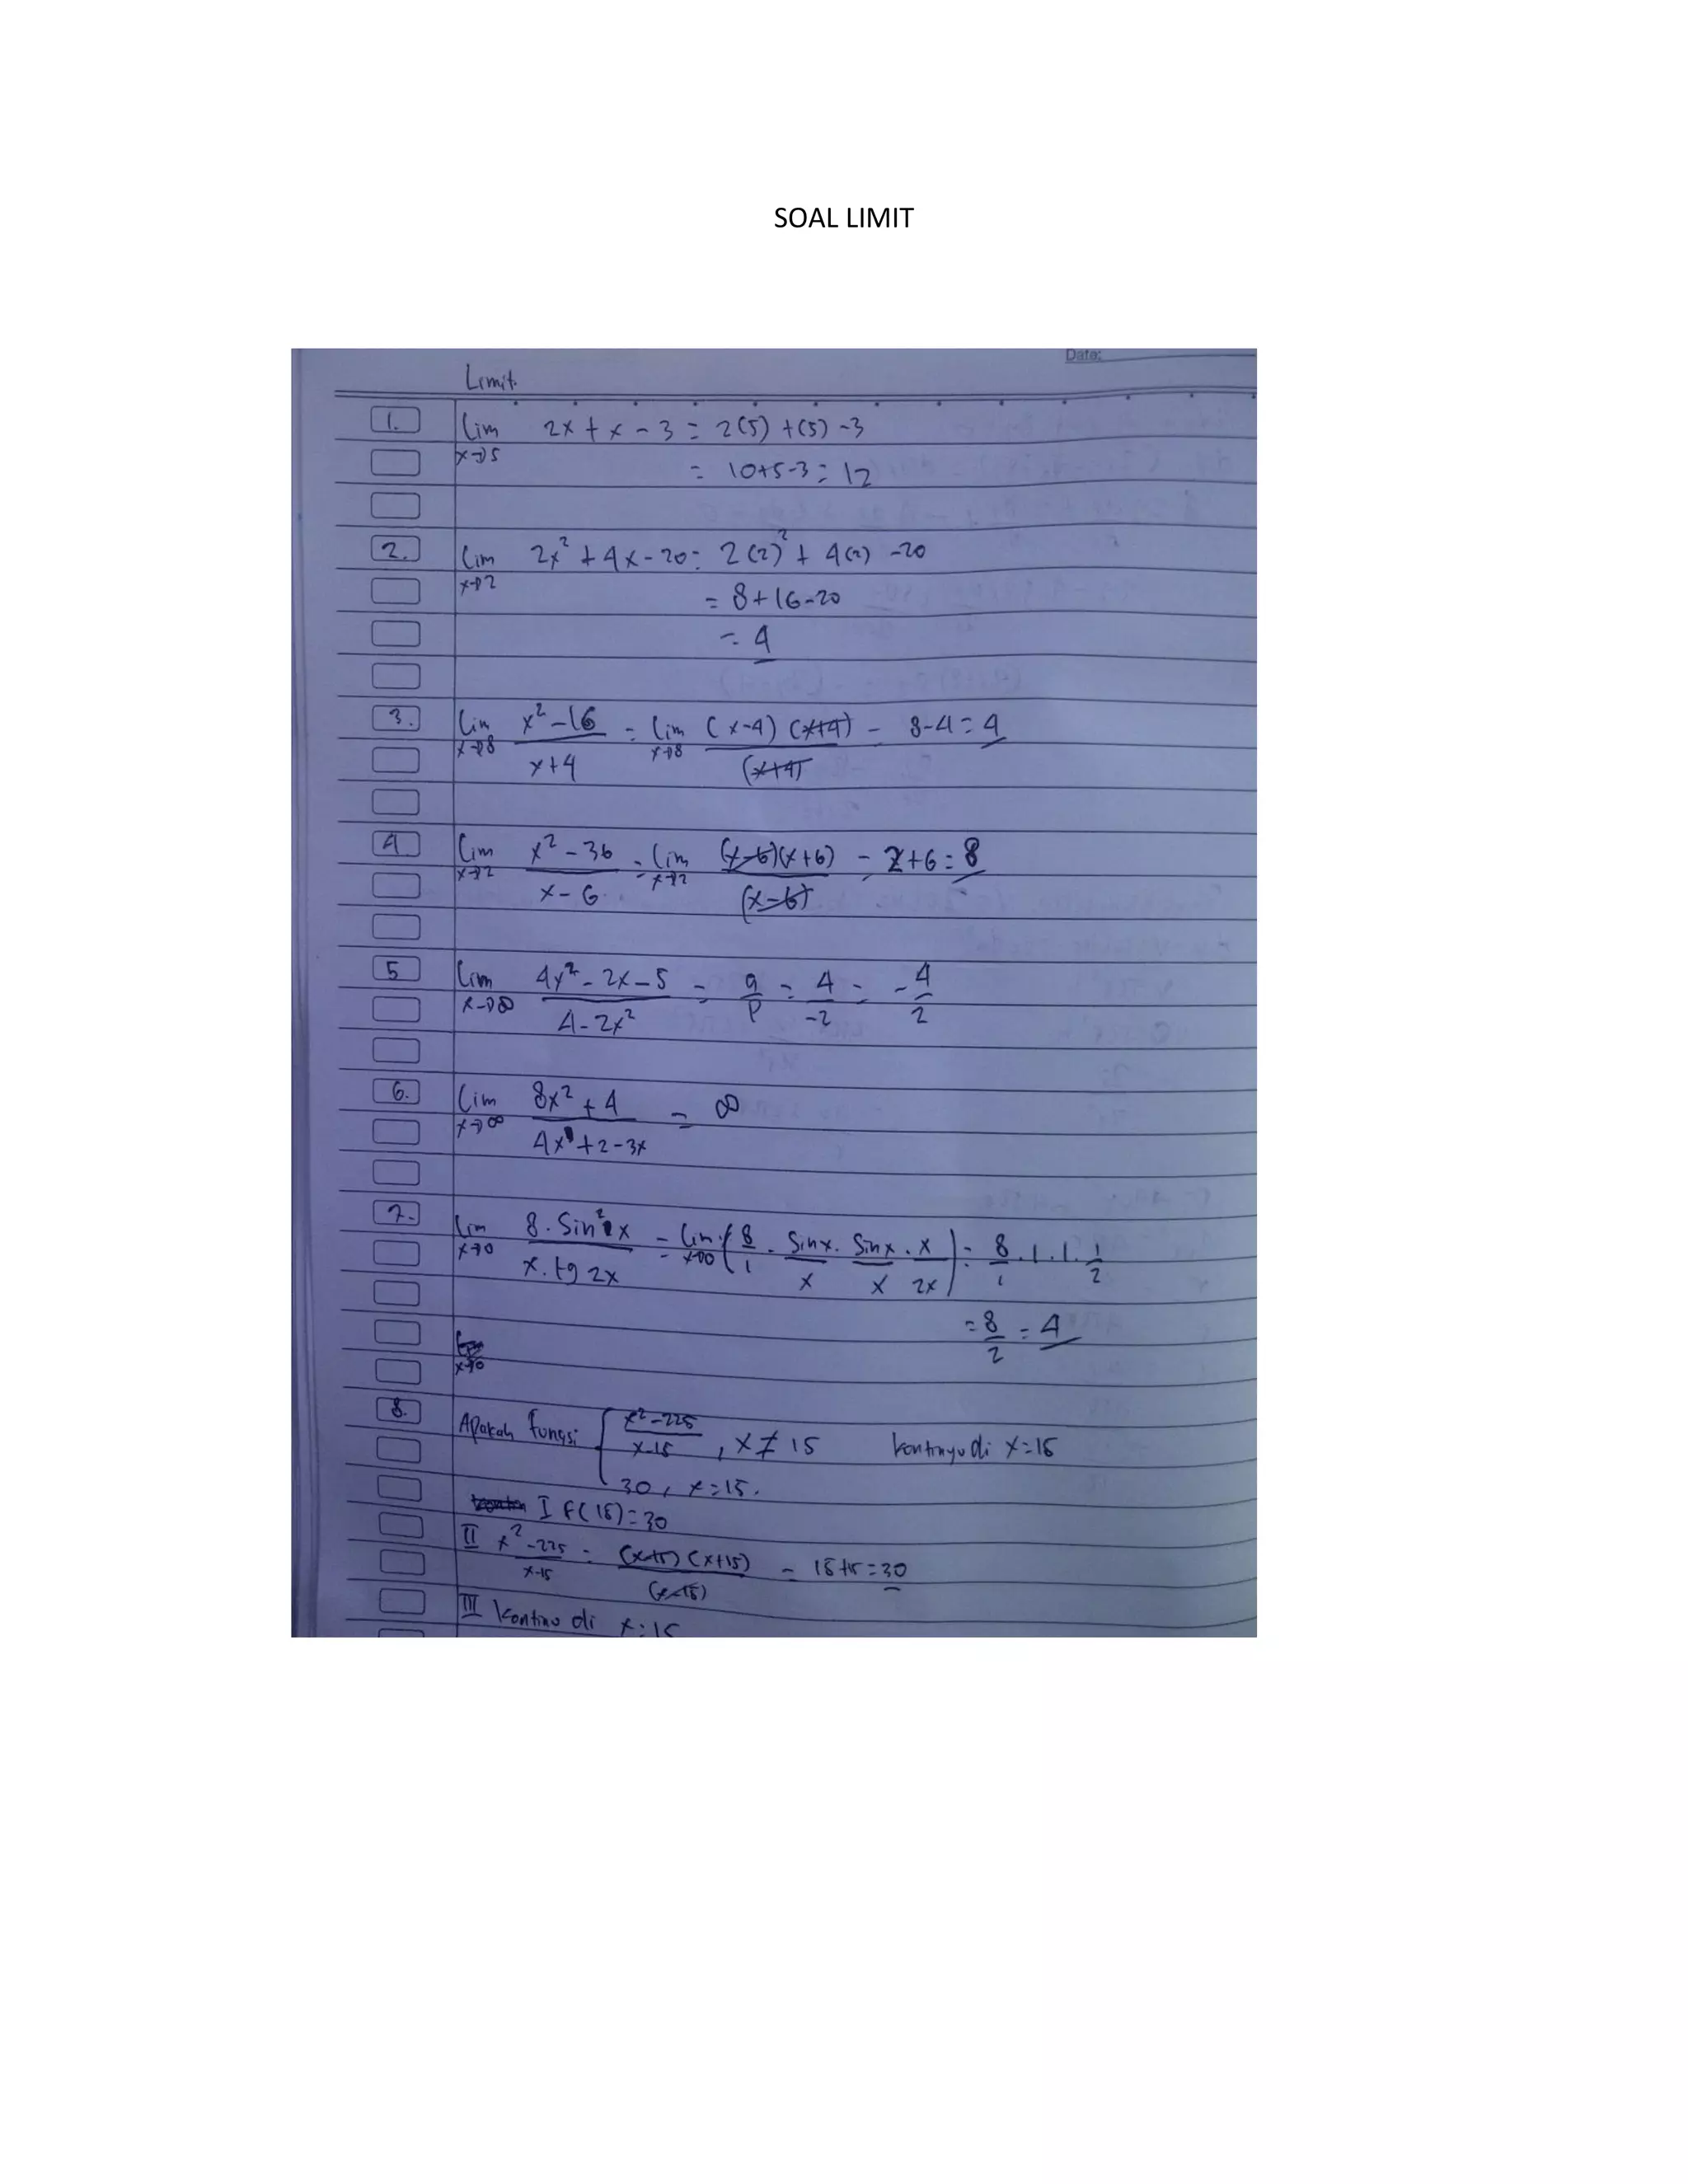 SOAL LIMIT
Date:
Limit.
1. lim x→5 2x + x - 3 = 2(5) + (5) - 3
= 10+5-3 = 12
2. lim x→2 2x² + 4x - 20 = 2(2)² + 4(2) - 20
= 8 + 16 - 20
= 4
3. lim x→8 (x² - 16)/(x+4) = lim x→8 (x-4)(x+4)/(x+4) = 8-4 = 4
4 lim x→2 (x² - 36)/(x-6) = lim x→2 (x-6)(x+6)/(x-6) = 2+6 = 8
5 lim x→∞ (4x² - 2x - 5)/(4 - 2x²) = a/p = 4/-2 = -4/2
6. lim x→∞ (8x² + 4)/(4x + 2 - 3x) = ∞
7. lim x→0 (8 . Sin² x)/(x . tg 2x) = lim x→0 (8/1 . Sin x/x . Sin x/x . x/2x) = 8/1 . 1 . 1 . 1/2
= 8/2 = 4
x→0
8. Apakah fungsi { (x² - 225)/(x-15) , x ≠ 15 kontinyu di x=15
30 , x = 15.
I f(15) = 30
II (x² - 225)/(x-15) = (x-15)(x+15)/(x-15) = 15+15 = 30
III Kontinu di x = 15